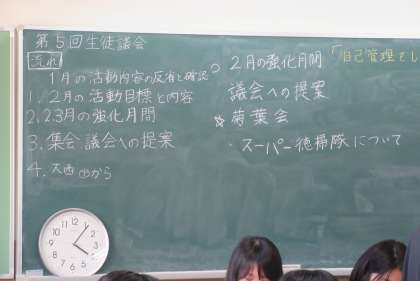 第5回生徒議会
流れ
1月の活動内容の反省と確認
1. 2月の活動目標と内容
2. 2,3月の強化月間
3. 集会・議会への提案
4. 大西 から
○ 2月の強化月間
「自己管理をし
議会への提案
☆ 菊葉会
・スーパー徳掃隊について
12 1 2 3 4 5 6 7 8 9 10 11